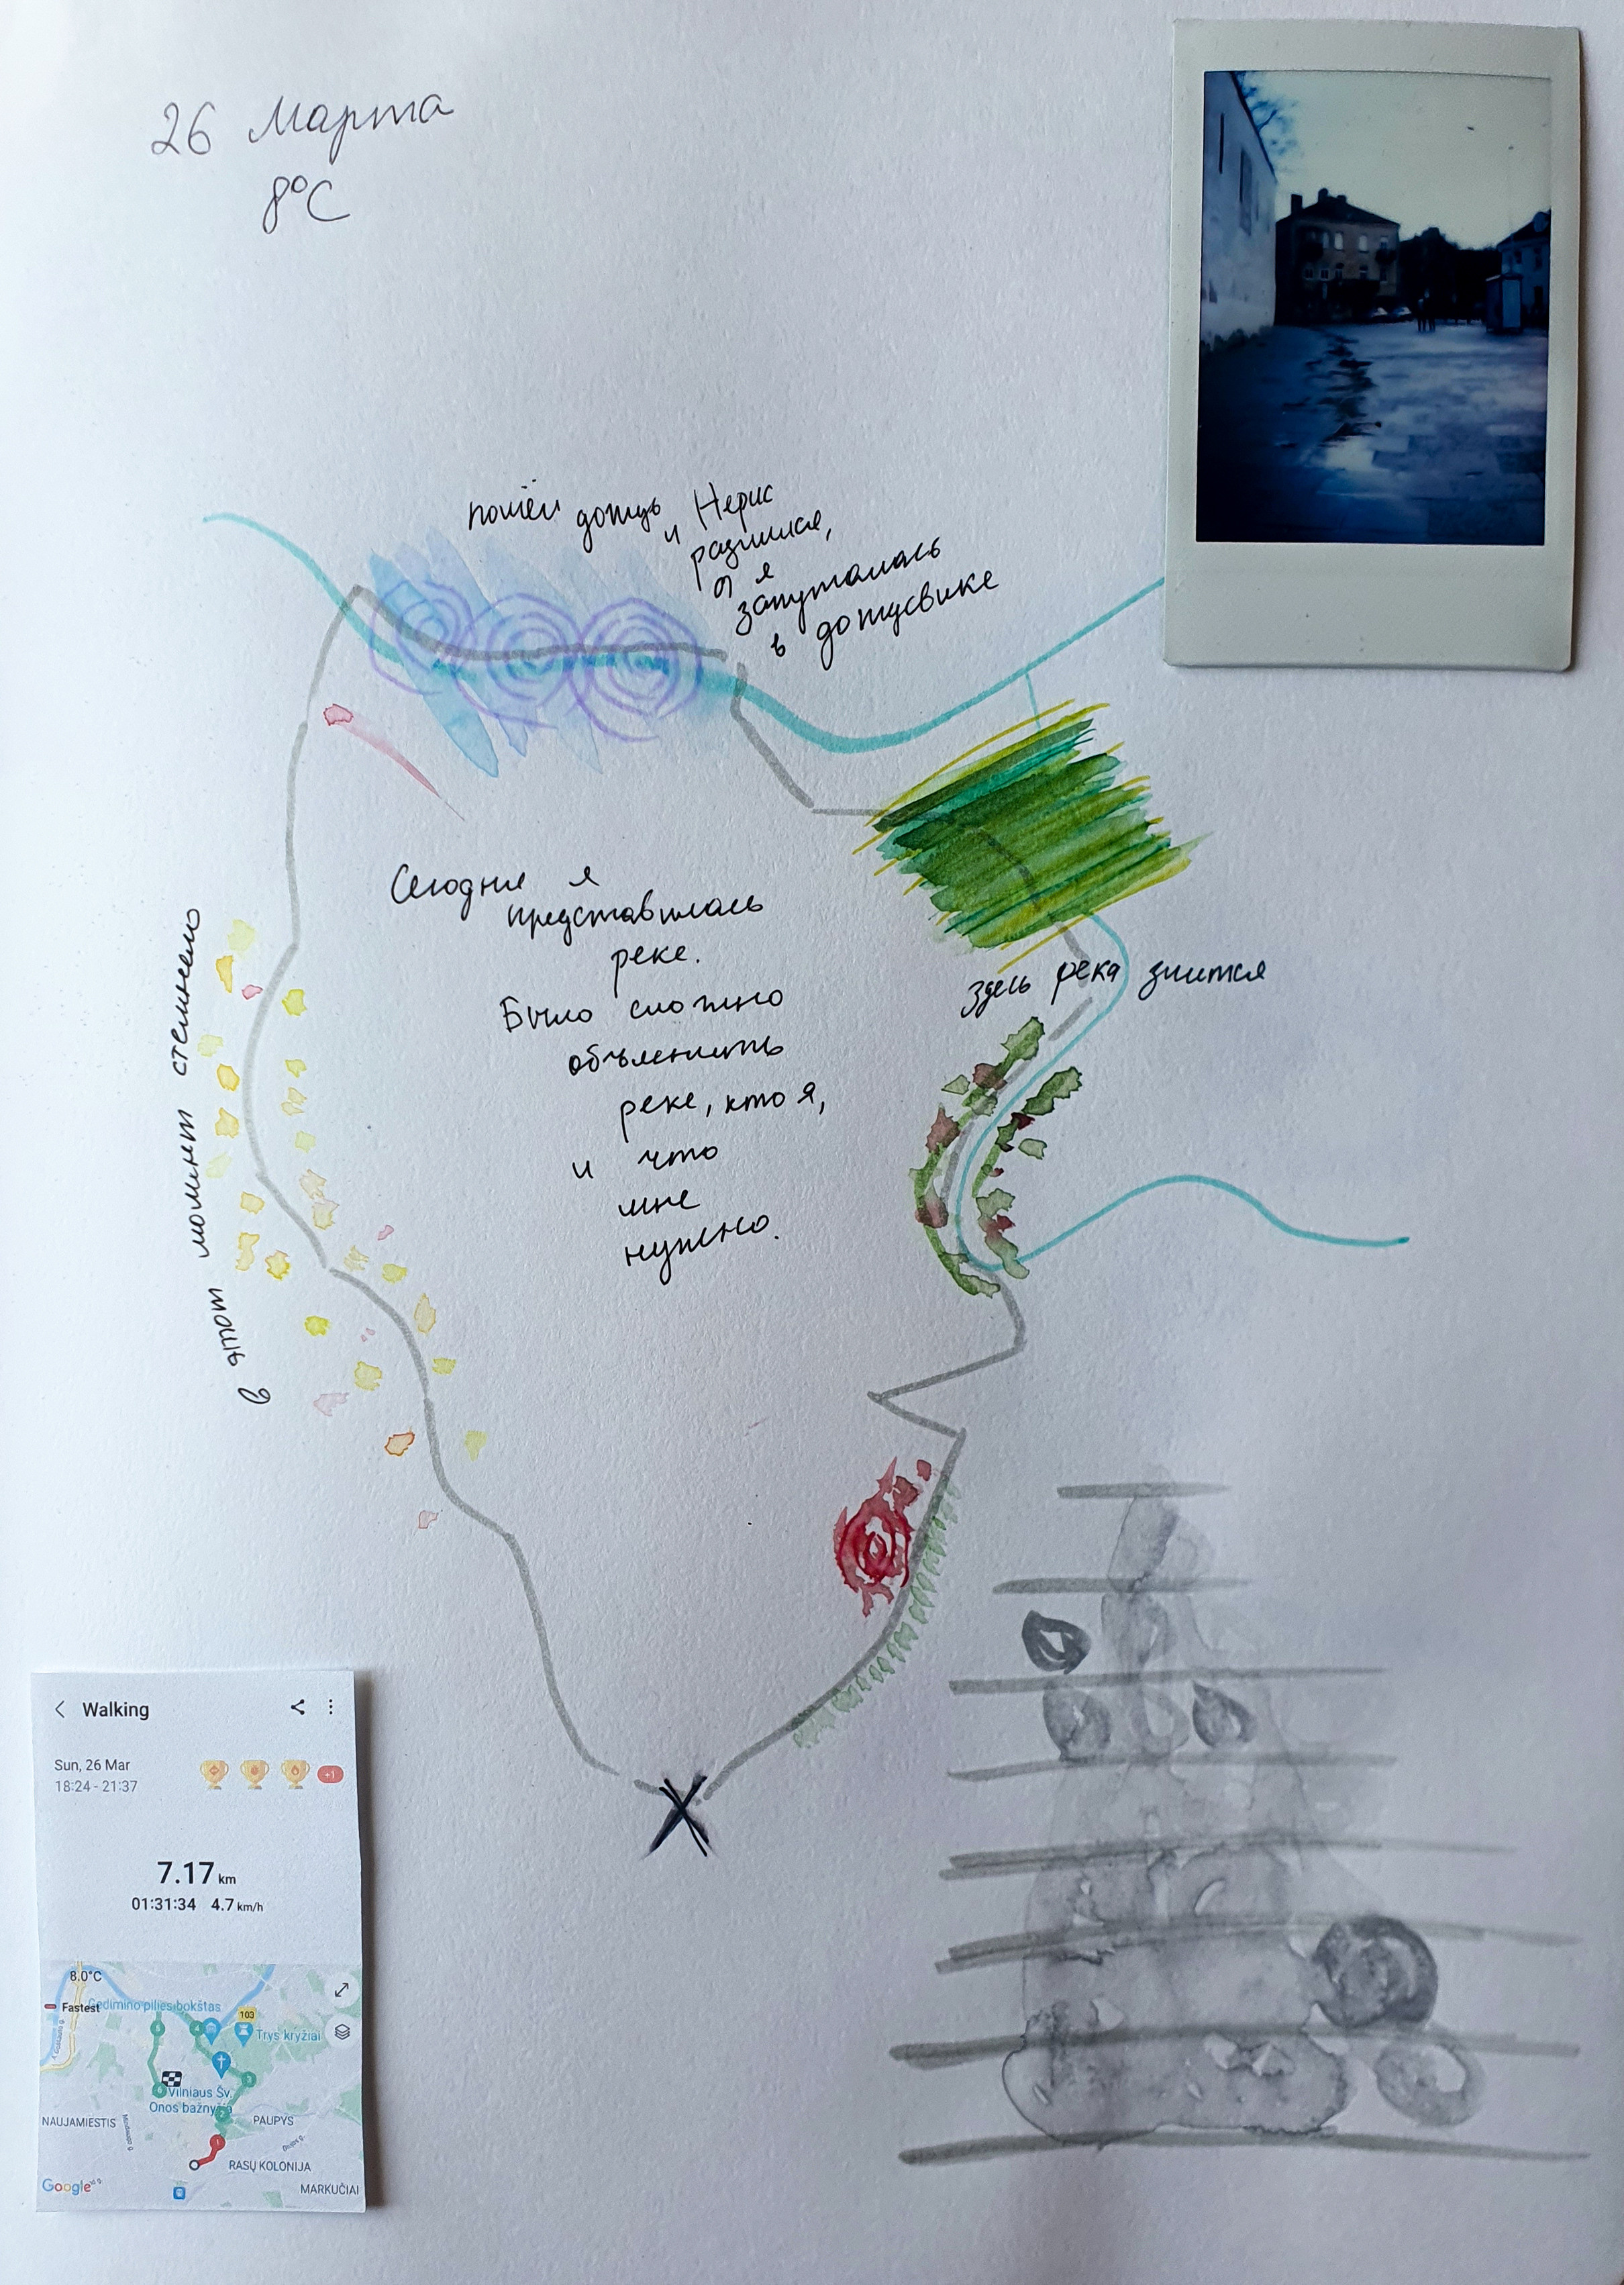 26 Марта
8°C
пошёл дождь
и Нерис
разлился,
а я
запуталась
в дождевике
Сегодня я
представилась
реке.
Было сложно
объяснить
реке, кто я,
и что
мне
нужно.
здесь река злится
в этот момент стемнело
Walking
Sun, 26 Mar
18:24 - 21:37
+1
7.17 km
01:31:34 4.7 km/h
8.0°C
Fastest
Gedimino pilies bokštas
103
Trys kryžiai
Vilniaus Šv.
Onos bažny
NAUJAMIESTIS
PAUPYS
RASŲ KOLONIJA
MARKUČIAI
Google